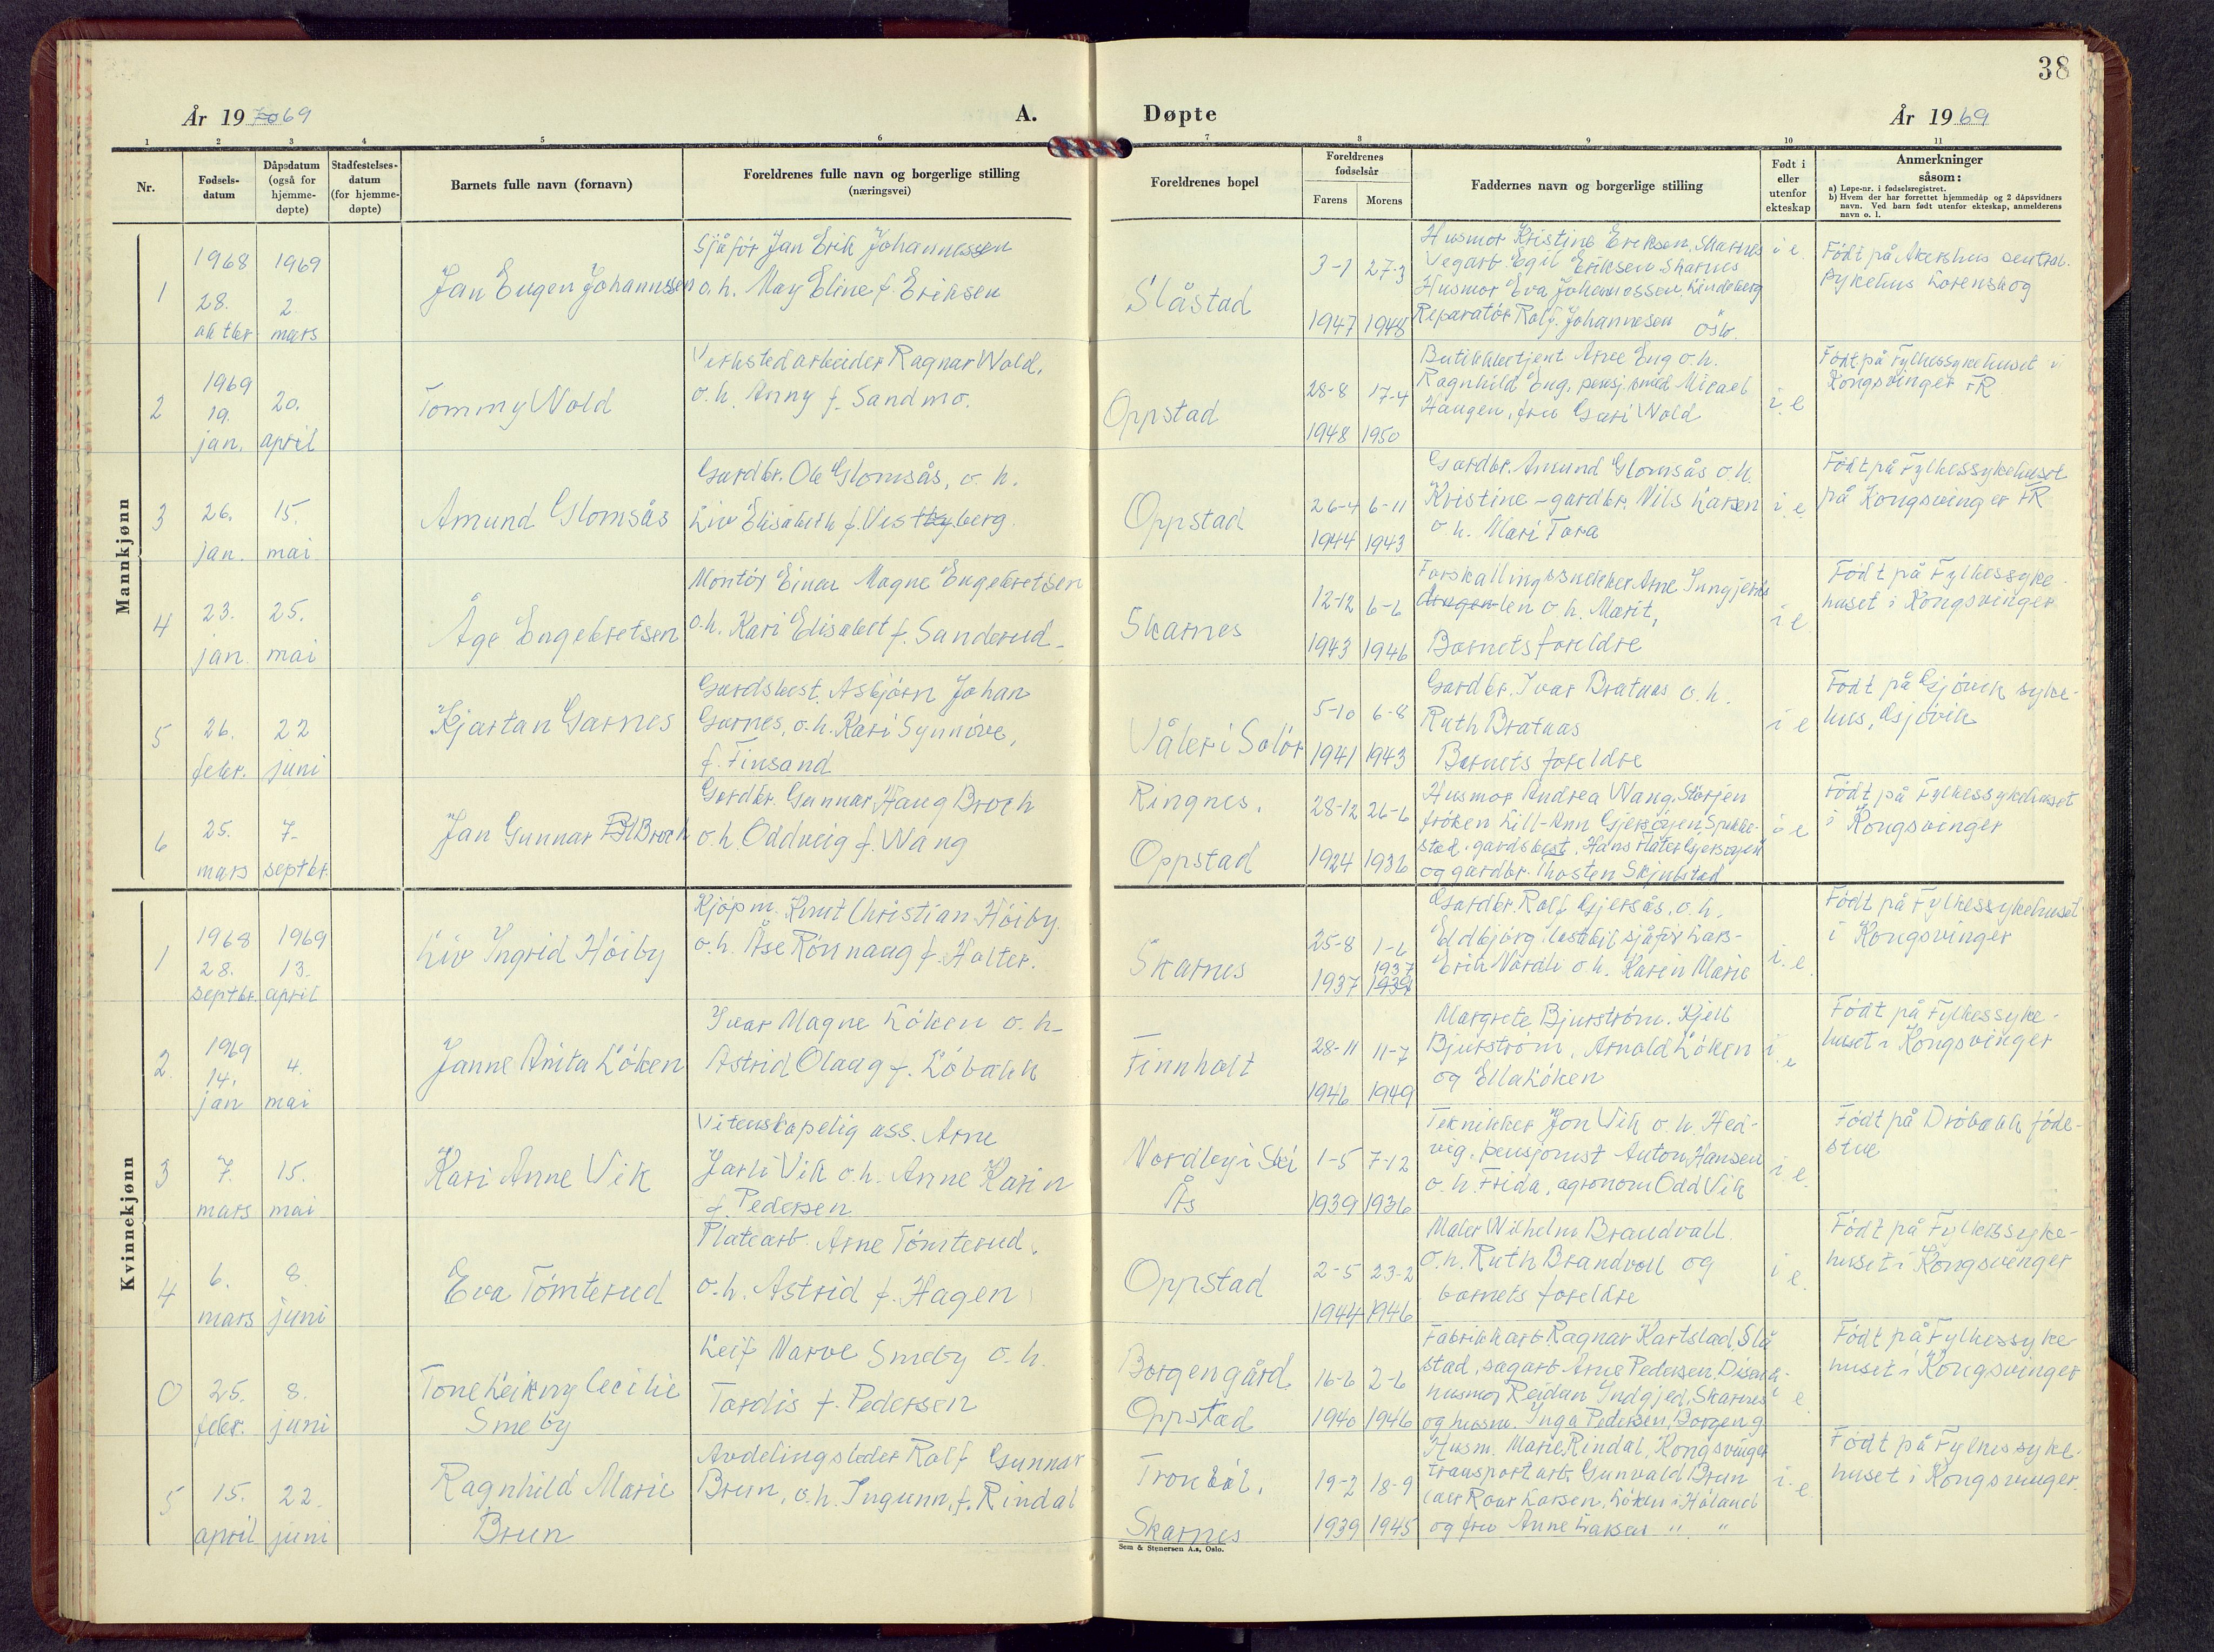 38
År 19 70 69
A.
Døpte
År 19 69
1 2 3 4 5 6 7 8 9 10 11
Nr.
Fødsels-
datum
Dåpsdatum
(også for
hjemme-
døpte)
Stadfestelses-
datum
(for hjemme-
døpte)
Barnets fulle navn (fornavn)
Foreldrenes fulle navn og borgerlige stilling
(næringsvei)
Foreldrenes bopel
Foreldrenes
fødselsår
Farens
Morens
Faddernes navn og borgerlige stilling
Født i
eller
utenfor
ekteskap
Anmerkninger
såsom:
a) Løpe-nr. i fødselsregistret.
b) Hvem der har forrettet hjemmedåp og 2 dåpsvidners
navn. Ved barn født utenfor ekteskap, anmelderens
navn o. l.
Mannkjønn
1
1968
28.
oktbr
1969
2
mars
Jan Eugen Johannssen
Sjåfør Jan Erik Johannessen
o. h. May Eline f. Eriksen
Slåstad
3-1
1947
27-3
1948
Husmor Kristine Eriksen, Skarnes
Vegarb. Egil Eriksen Skarnes
Husmor Eva Johannessen, Lindeberg
Reparatör Rolf Johannesen Oslo.
i e
Født på Akershus sentral-
sykehus Lørenskog
2
1969
19.
jan.
20.
april
Tommy Wold
Verkstedarbeider Ragnar Wold,
o. h. Anny f. Sandmo.
Oppstad
28-8
1948
17-4
1950
Butikkbetjent Arve Eng o. h.
Ragnhild Eng, pensj. smed Micael
Haugen, fru Guri Wold
i. e
Født på Fylkessykehuset i
Kongsvinger FR
3
26.
jan.
15.
mai
Amund Glomsås
Gardbr. Ole Glomsås, o. h.
Liv Elisabeth f. Vestbyberg.
Oppstad
26-4
1944
6-11
1943
Gardbr. Amund Glomsås o. h.
Kristine - gardbr. Nils Larsen
o h. Mari Tora
i e.
Født på Fylkessykehuset
på Kongsvinger FR
4
23.
jan.
25.
mai
Åge Engebretsen
Montör Einar Magne Engebretsen
o. h. Kari Elisabet f. Sanderud-
Skarnes
12-12
1943
6-6
1946
Forskalingssnekker Arne
len o. h. Marit,
Barnets foreldre
i e
Født på Fylkessyke-
huset i Kongsvinger
5
26.
febr.
22
juni
Kjartan Garnes
Gardsbest. Asbjørn Johan
Garnes, o. h. Kari Synnöve,
f. Finsand
Våler i Solör
5-10
1941
6-8
1943
Gardbr. Ivar Brataas o. h.
Ruth Brataas
Barnets foreldre
i e
Født på Gjövik syke-
hus, Gjövik
6
25.
mars
7-
septbr.
Jan Gunnar Broch
Gardbr. Gunnar Haug Broch
o. h. Oddveig f. Wang
Ringnes.
Oppstad
28-12
1924
26-6
1936
Husmor Andrea Wang, Storsjøen
fröken Lill-Ann
stad. gardsbest. Hans
og gardbr. Thosten Skjulstad
i e
Født på Fylkessykehuset
i Kongsvinger
Kvinnekjønn
1
1968
28.
septbr.
1969
13.
april
Liv Ingrid Höiby
Kjöpm. Knut Christian Höiby.
o. h. Åse Rönnaug f. Holter.
Skarnes
25-8
1937
1-6
1937
1939
Gardbr. Rolf Gjersås, o. h.
Eldbjörg. lastebilsjåför Lars-
Erik Nordli o. h. Karin Marie
i. e
Født på Fylkessykehuset
i Kongsvinger
2.
1969
14.
jan
4.
mai
Janne Anita Löken
Ivar Magne Löken o. h-
Astrid Olaug f. Löbakk
Finnholt
28-11
1946
11-7
1949
Margrete Bjurström. Kjell
Bjurström, Arnold Löken
og Ella Löken
i. e
Født på Fylkessyke-
huset i Kongsvinger
3
7.
mars
15.
mai
Kari Anne Vik
Vitenskapelig ass. Arne
Jarli Vik o. h. Anne Karin
f. Pedersen
Nordby i Ski
Ås
1-5
1939
7-12
1936
Tekniker Jon Vik o. h. Hed-
vig, pensjonist Anton Hansen
o. h. Frida, agronom Odd Vik
i e.
Født på Dröbakk föde-
stue
4
6.
mars
8.
juni
Eva Tömterud
Platearb. Arne Tömterud.
o. h. Astrid f. Hagen
Oppstad
2-5
1944
23-2
1946
Maler Wilhelm Brandvall.
o. h. Ruth Brandvoll og
barnets foreldre
i e.
Født på Fylkessyke-
huset i Kongsvinger
0
25.
febr.
8.
juni
Tone Leikny Cecilie
Smeby
Leif Narve Smeby o. h.
Tordis f. Pedersen
Borgengård
Oppstad
16-6
1940
2-6
1946
Fabrikkarb. Ragnar Kartstad, Slå
stad, sagarb. Arne Pedersen, Disenå-
husmor Reidun Skarnes
og husm. Inga Pedersen, Borgen g
i e
Født på Fylkessyke
huset i Kongsvinger
5
15.
april
22.
juni
Ragnhild Marie
Brun
Avdelingsleder Rolf Gunnar
Brun, o. h. Ingunn, f. Rindal
Tronböl.
Skarnes
19-2
1939
18-9
1945
Husm. Marie Rindal, Kongsvinger
transportarb. Gunvald Brun
Roar Larsen, Löken i Höland
og fru Anne Larsen " "
i. e.
Født på Fylkessyke-
huset i Kongsvinger.
Sem & Stenersen A.s, Oslo.